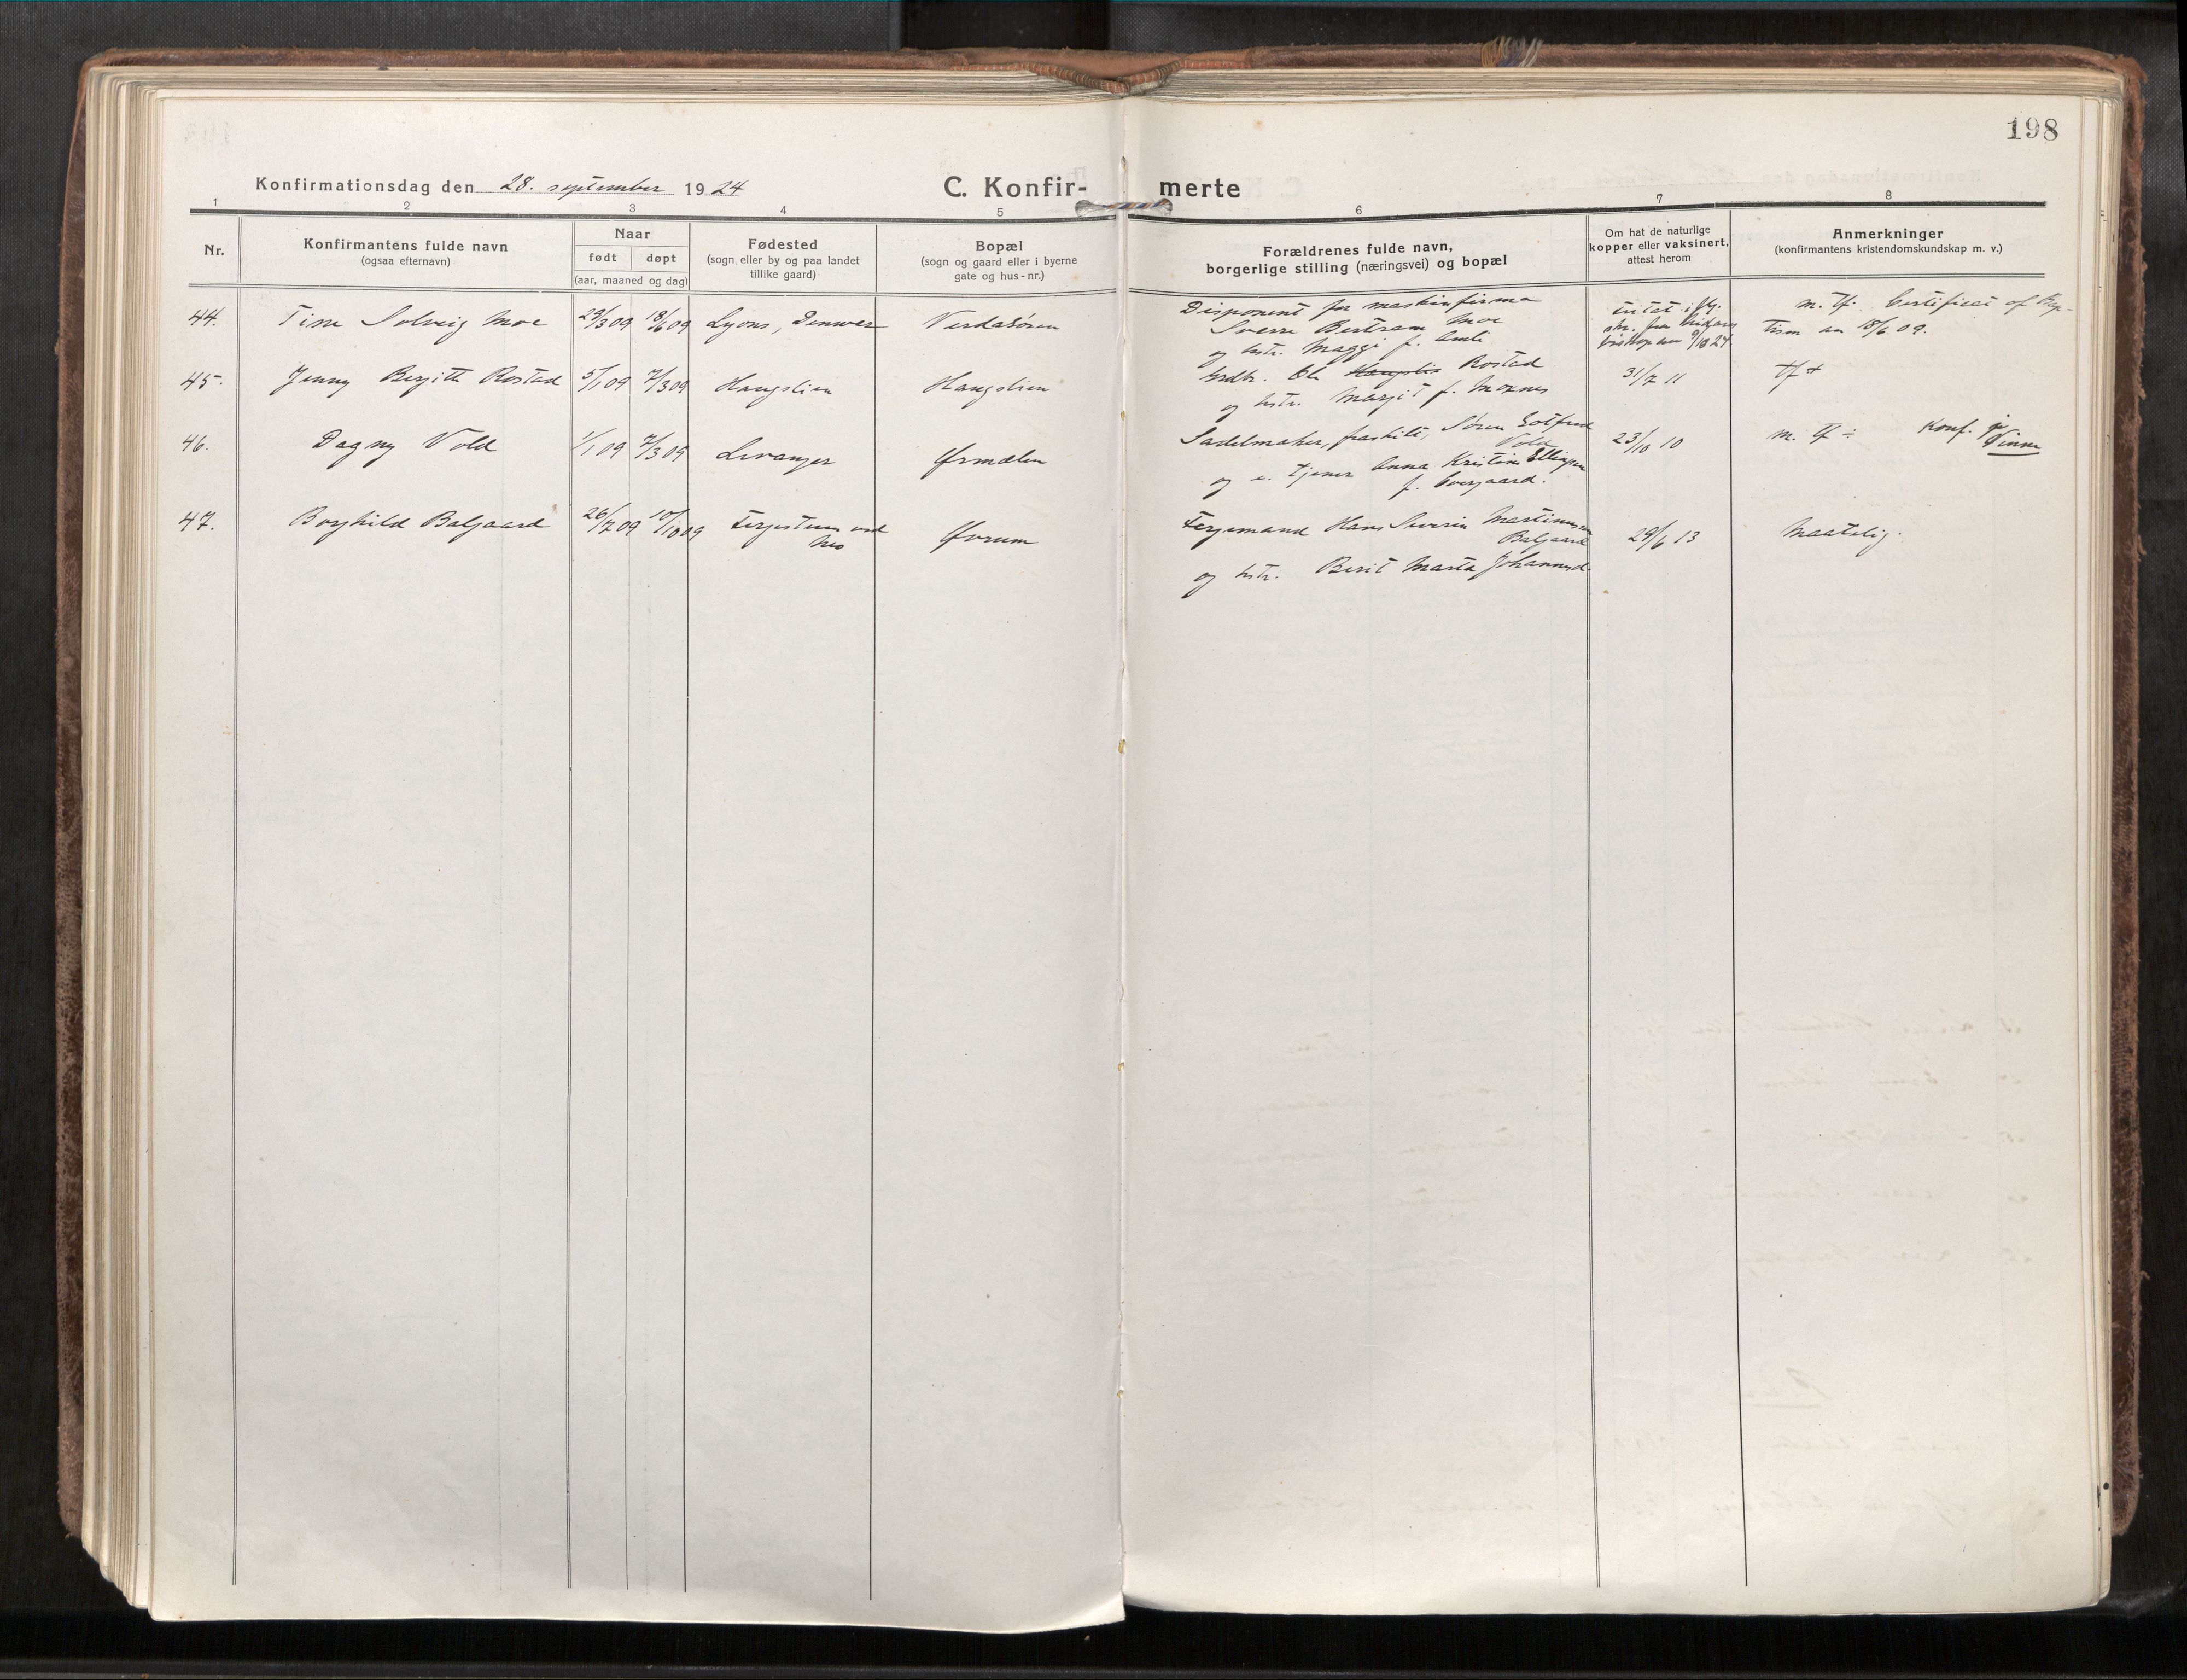 198
Konfirmationsdag den 28. september 1924
C. Konfir-
merte
1 2 3 4 5 6 7 8
Nr.
Konfirmantens fulde navn
(ogsaa efternavn)
Naar
født døpt
(aar, maaned og dag)
Fødested
(sogn eller by og paa landet
tillike gaard)
Bopæl
(sogn og gaard eller i byerne
gate og hus-nr.)
Forældrenes fulde navn,
borgerlige stilling (næringsvei) og bopæl
Om hat de naturlige
kopper eller vaksinert,
attest herom
Anmerkninger
(konfirmantens kristendomskundskap m. v.)
44. Tim Solveig Moe 29/3 09 18/6 09 Lyons, Denwer Verdalsören
Disponent for maskinfirma
Sverre Bertram Moe
og hstr. Maggi f.
fritat i flg.
skr. fra
biskopen 9/10 24
m. Tf. Certificat of Bap-
tism av 18/6 09.
45. Jenny Bergitte Rostad 5/1 09 7/3 09 Haugslien Haugslien
Grdbr. Ole Haugslie Rostad
og hstr. Margit f. Moxnes
31/7 11
Tf +
46. Dagny Vold 1/1 09 7/3 09 Levanger Ørmelen
Sadelmaker, fraskilt, Søren Gotfred
Vold
og e. tjener Anna Kristine Ellingsen
f. Overgaard.
23/10 10
m. Tf ÷ Konf. i
Vinne
47. Borghild Balgaard 26/7 09 10/10 09 Fergestuen ved
Mo
Øvrum
Fergemand Hans Severin Martinussen
Balgaard
og hstr. Berit Marta Johannesd.
29/6 13
Maatelig.